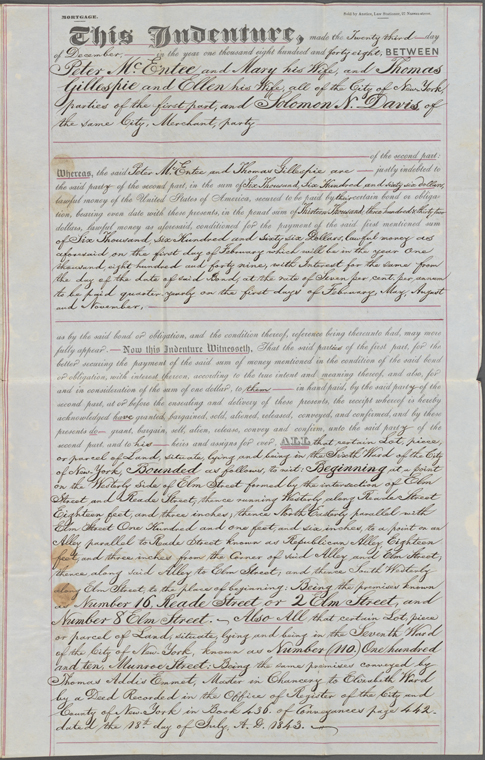 MORTGAGE.
This Indenture, made the Twenty third day
of December, in the year one thousand eight hundred and forty eight, BETWEEN
Peter McEntee and Mary his Wife, and Thomas
Gillespie and Ellen his Wife, all of the City of New York,
parties of the first part, and Solomon N. Davis, of
the same City, Merchant, party
of the second part:
Whereas, the said Peter McEntee and Thomas Gillespie are justly indebted to
the said party of the second part, in the sum of Six Thousand, Six Hundred and Sixty six dollars,
lawful money of the United States of America, secured to be paid by this certain bond or obliga-
tion, bearing even date with these presents, in the penal sum of Thirteen Thousand, three hundred & thirty two
dollars, lawful money as aforesaid, conditioned for the payment of the said first mentioned sum
of Six Thousand, Six Hundred and Sixty six Dollars, lawful money as
aforesaid on the first day of February which will be in the year One
thousand, eight hundred and forty nine, with Interest for the same from
the day of the date of said Bond, at the rate of Seven per cent, per annum
to be paid quarter yearly on the first days of February, May, August
and November,
as by the said bond or obligation, and the condition thereof, reference being thereunto had, may more
fully appear. Now this Indenture Witnesseth, That the said parties of the first part, for the
better securing the payment of the said sum of money mentioned in the condition of the said bond
or obligation, with interest thereon, according to the true intent and meaning thereof, and also, for
and in consideration of the sum of one dollar, to them in hand paid, by the said party of the
second part, at or before the ensealing and delivery of these presents, the receipt whereof is hereby
acknowledged have granted, bargained, sold, aliened, released, conveyed, and confirmed, and by these
presents do grant, bargain, sell, alien, release, convey and confirm, unto the said party of the
second part, and to his heirs and assigns for ever. ALL that certain Lot, piece,
or parcel of Land, situate, lying and being in the Sixth Ward of the City
of New York, Bounded as follows, to wit: Beginning at a point
on the Westerly Side of Elm Street formed by the intersection of Elm
Street and Reade Street, thence running Westerly along Reade Street
Eighteen feet, and three inches; thence North Easterly parallel with
Elm Street One Hundred and one feet, and six inches, to a point on an
Alley parallel to Reade Street known as Republican Alley Eighteen
feet, and three inches from the Corner of said Alley and Elm Street,
thence along said Alley to Elm Street, and thence South Westerly
along Elm Street, to the place of beginning: Being the premises known
as Number 16 Reade Street or 2 Elm Street, and
Number 8 Elm Street. Also All that certain Lot, piece
or parcel of Land, situate, lying and being in the Seventh Ward
of the City of New York, known as Number (110) One hundred
and ten, Munroe Street: Being the same premises conveyed by
Thomas Addis Emmet, Master in Chancery to Elizabeth Ward
by a Deed Recorded in the Office of Register of the City and
County of New York in Book 436. of Conveyances page 442.
dated, the 18th day of July, A. D. 1843.